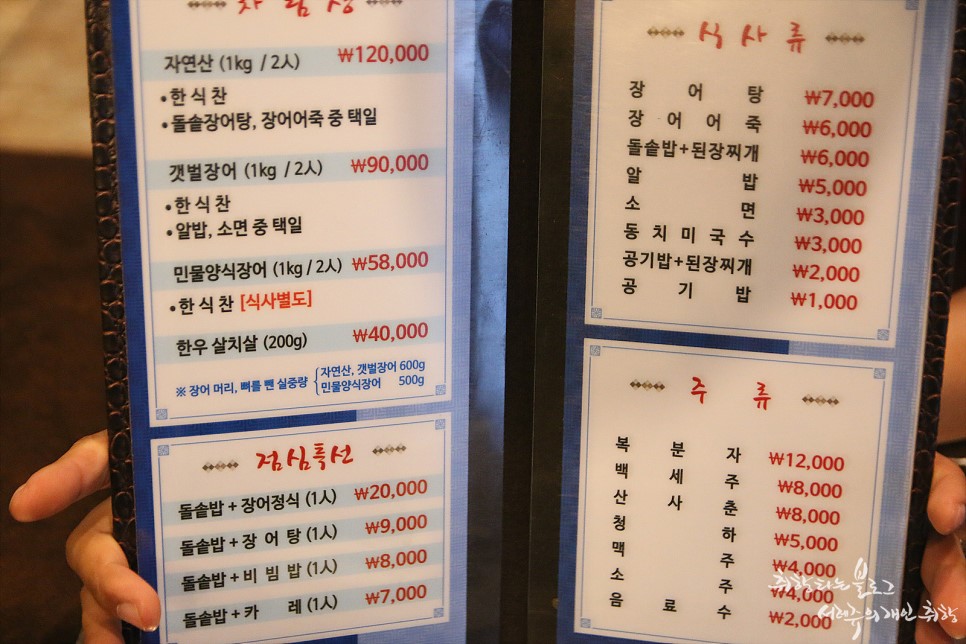 차림상
자연산 (1kg / 2人) ₩120,000
• 한 식 찬
• 돌솥장어탕, 장어어죽 중 택일
갯벌장어 (1kg / 2人) ₩90,000
• 한 식 찬
• 알밥, 소면 중 택일
민물양식장어 (1kg / 2人) ₩58,000
• 한 식 찬 [식사별도]
한우 살치살 (200g) ₩40,000
※ 장어 머리, 뼈를 뺀 실중량 { 자연산, 갯벌장어 600g
민물양식장어 500g
점심특선
돌솥밥 + 장어정식 (1人) ₩20,000
돌솥밥 + 장 어 탕 (1人) ₩9,000
돌솥밥 + 비 빔 밥 (1人) ₩8,000
돌솥밥 + 카 레 (1人) ₩7,000
식 사 류
장 어 탕 ₩7,000
장 어 어 죽 ₩6,000
돌솥밥+된장찌개 ₩6,000
알 밥 ₩5,000
소 면 ₩3,000
동 치 미 국 수 ₩3,000
공기밥+된장찌개 ₩2,000
공 기 밥 ₩1,000
주 류
복 분 자 ₩12,000
백 세 주 ₩8,000
산 사 춘 ₩8,000
청 하 ₩5,000
맥 주 ₩4,000
소 주 ₩4,000
음 료 수 ₩2,000
취향타는 블로그
의 개인 취향